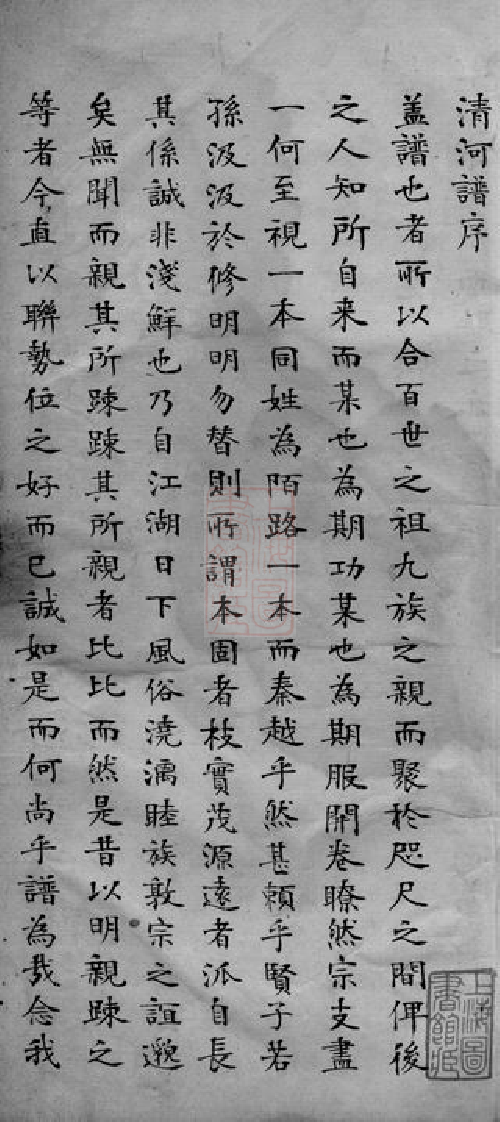 清河譜序
蓋譜也者所以合百世之祖九族之親而聚於咫尺之間俾後
之人知所自来而某也為期功某也為期服開卷瞭然宗支盡
一何至視一本同姓為陌路一本而秦越乎然甚賴乎賢子若
孫汲汲於修明明勿替則所謂本固者枝實茂源遠者派自長
其係誠非淺鮮也乃自江湖日下風俗澆漓睦族敦宗之誼邈
矣無聞而親其所踈踈其所親者比比而然是昔以明親踈之
等者今直以聯勢位之好而已誠如是而何尚乎譜為哉念我
上海圖書館藏